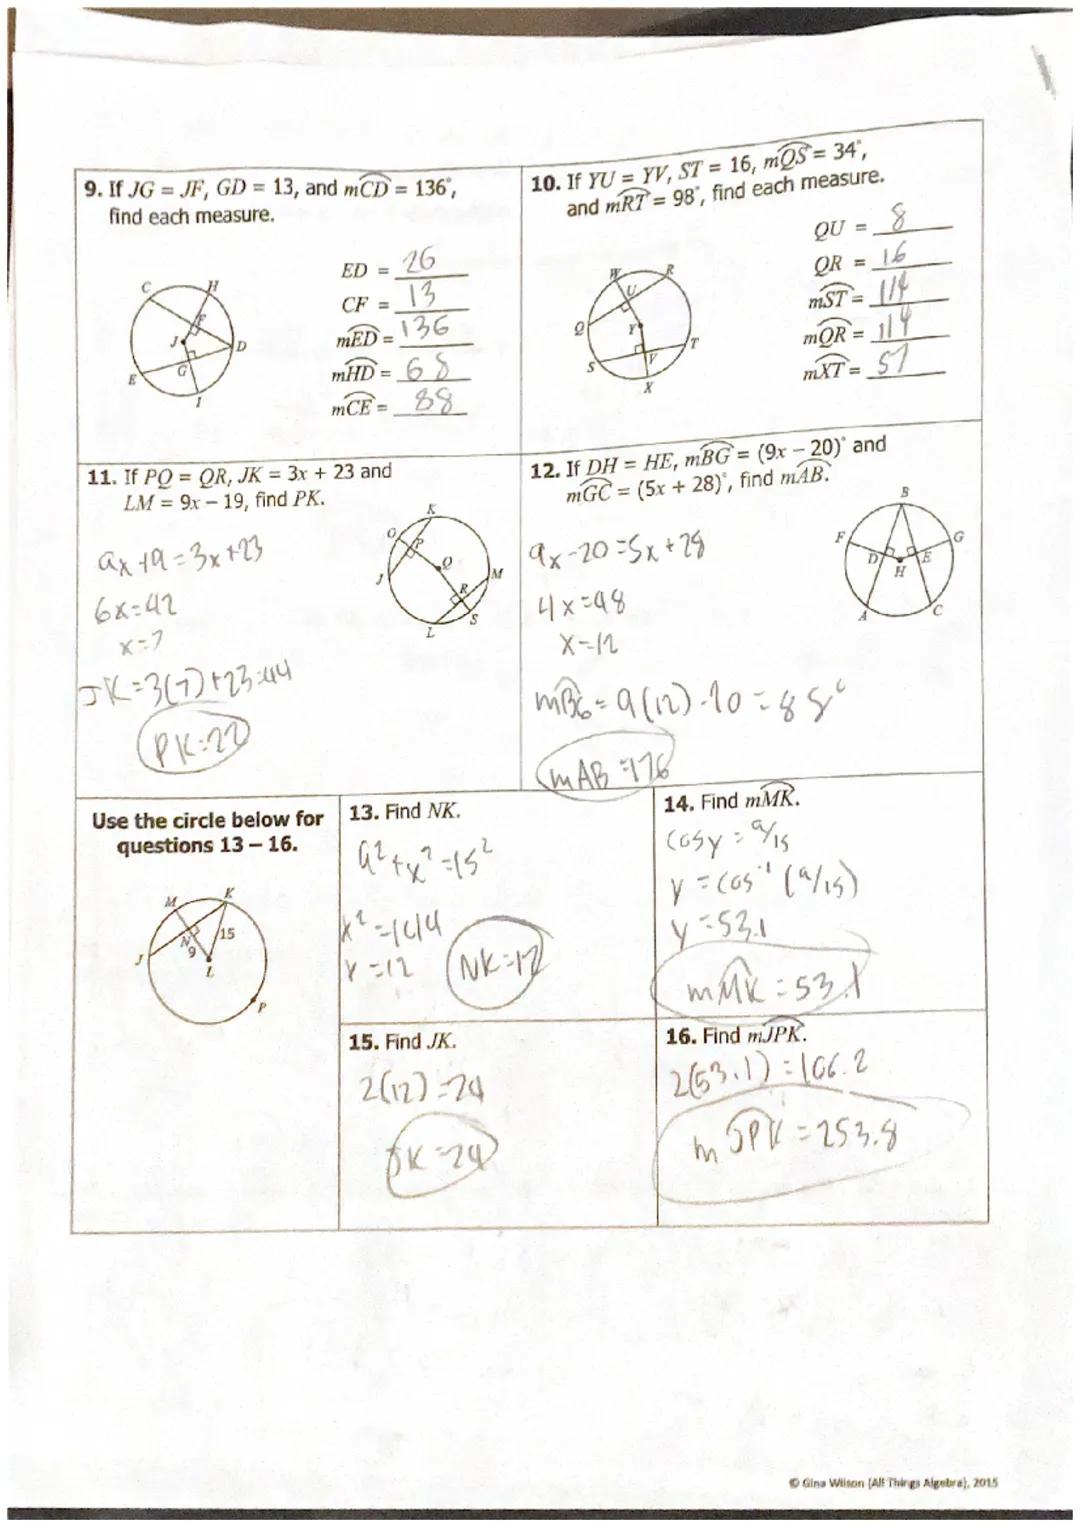 9. If JG = JF, GD = 13, and mCD = 136°,
find each measure.
C
H
F
J
D
G
E
I
ED = 26
CF = 13
mED = 136
mHD = 68
mCE = 88
10. If YU = YV, ST = 16, mQS = 34°,
and mRT = 98°, find each measure.
W
R
U
Q
Y
T
S
V
X
QU = 8
QR = 16
mST = 114
mQR = 114
mXT = 57
11. If PQ = QR, JK = 3x + 23 and
LM = 9x – 19, find PK.
K
O
P
Q
J
M
R
L
S
9x +19 = 3x +23
6x=42
x=7
JK=3(7)+23=44
PK=22
12. If DH = HE, mBG = (9x – 20)° and
mGC = (5x + 28)°, find mAB.
B
F
G
D
E
H
A
C
9x-20=5x+28
4x=48
x=12
mBG = 9(12)-20 = 88°
mAB=176
Use the circle below for
questions 13 – 16.
M
K
N
15
J
9
L
P
13. Find NK.
9²+x²=15²
x²=144
x=12
NK=12
14. Find mMK.
cosy = 9/15
y = cos⁻¹ (9/15)
y=53.1
mMK = 53.1
15. Find JK.
2(12)=24
JK=24
16. Find mJPK.
2(53.1)=106.2
m JPK = 253.8
© Gina Wilson (All Things Algebra), 2015